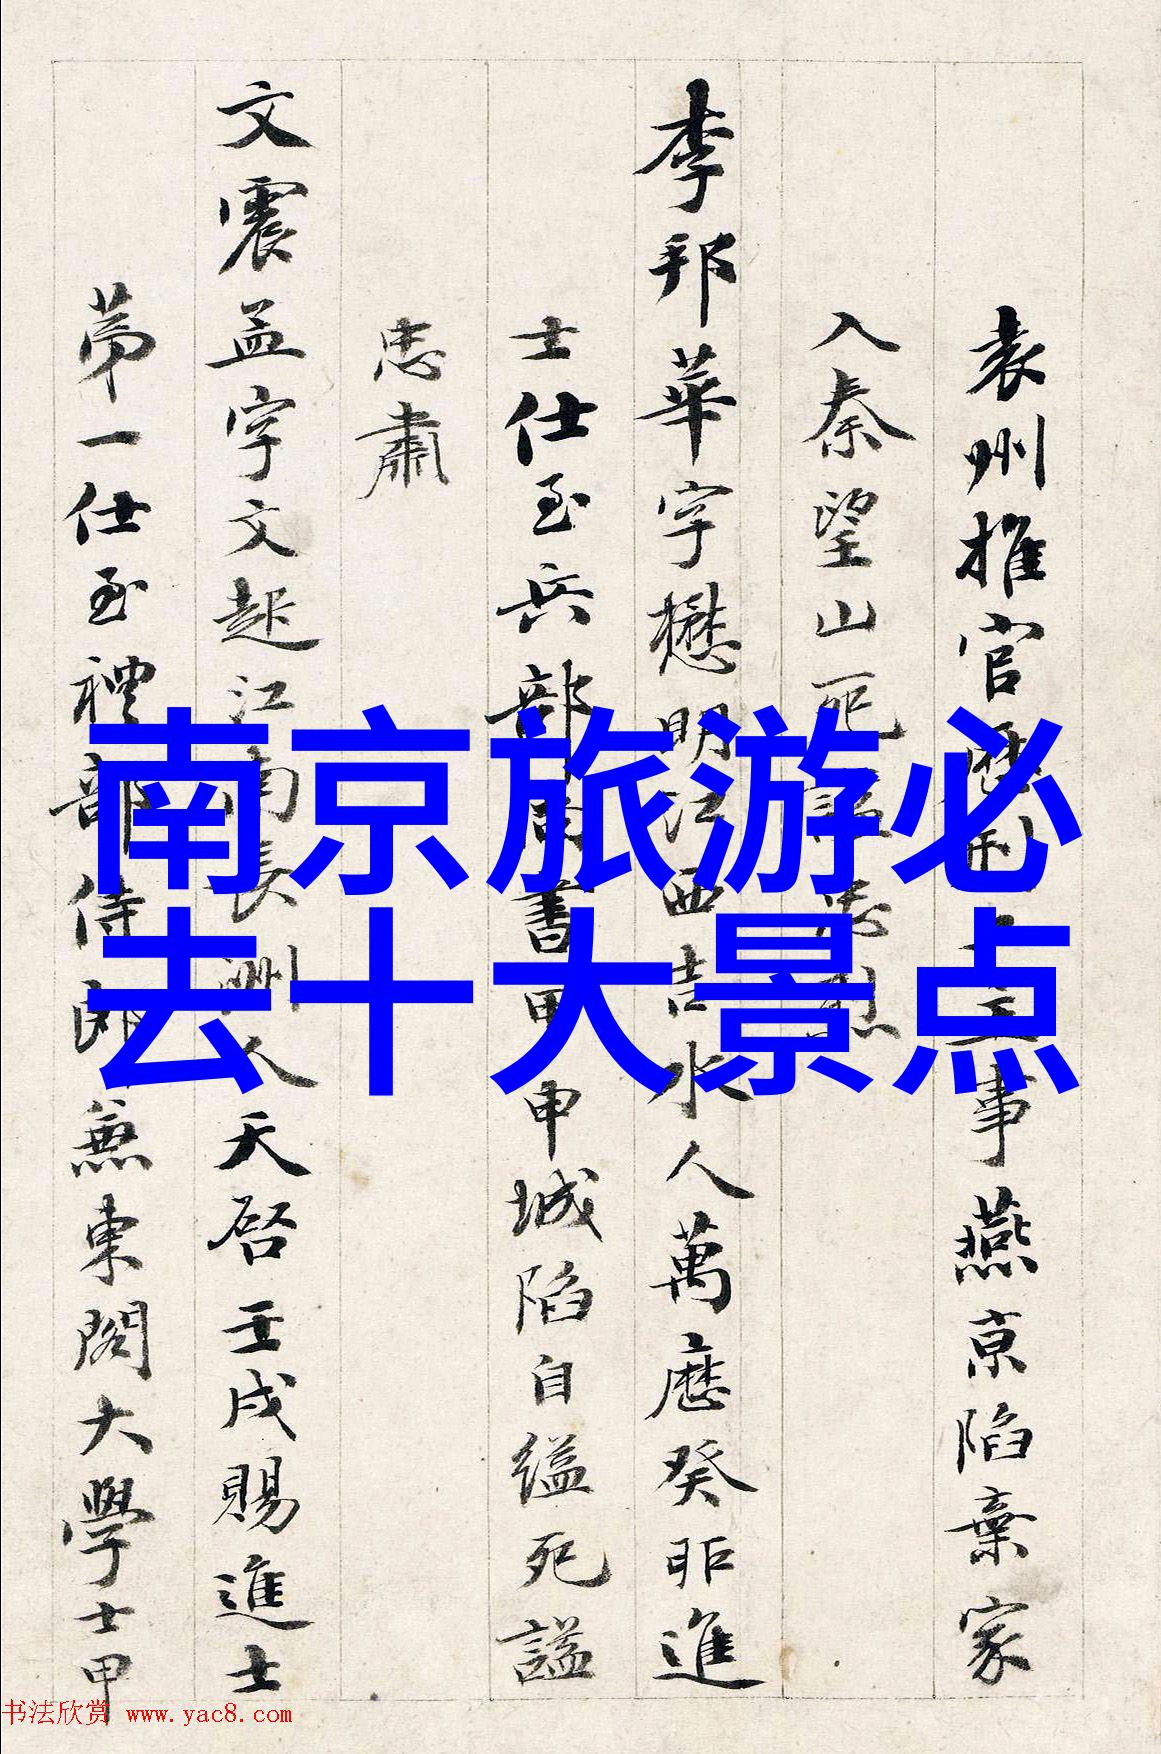 南京旅游必
去十大景点
袁州推官歷
事燕京陷棄家
入秦望山死
李邦華字懋明江西吉水人萬曆癸卯進
士仕至兵部書甲申城陷自縊死謚
忠肅
文震孟字文起江南長洲人天啓壬戌賜進士
第一仕至禮部侍郎兼東閣大學士甲
书法欣赏 www.yac8.com